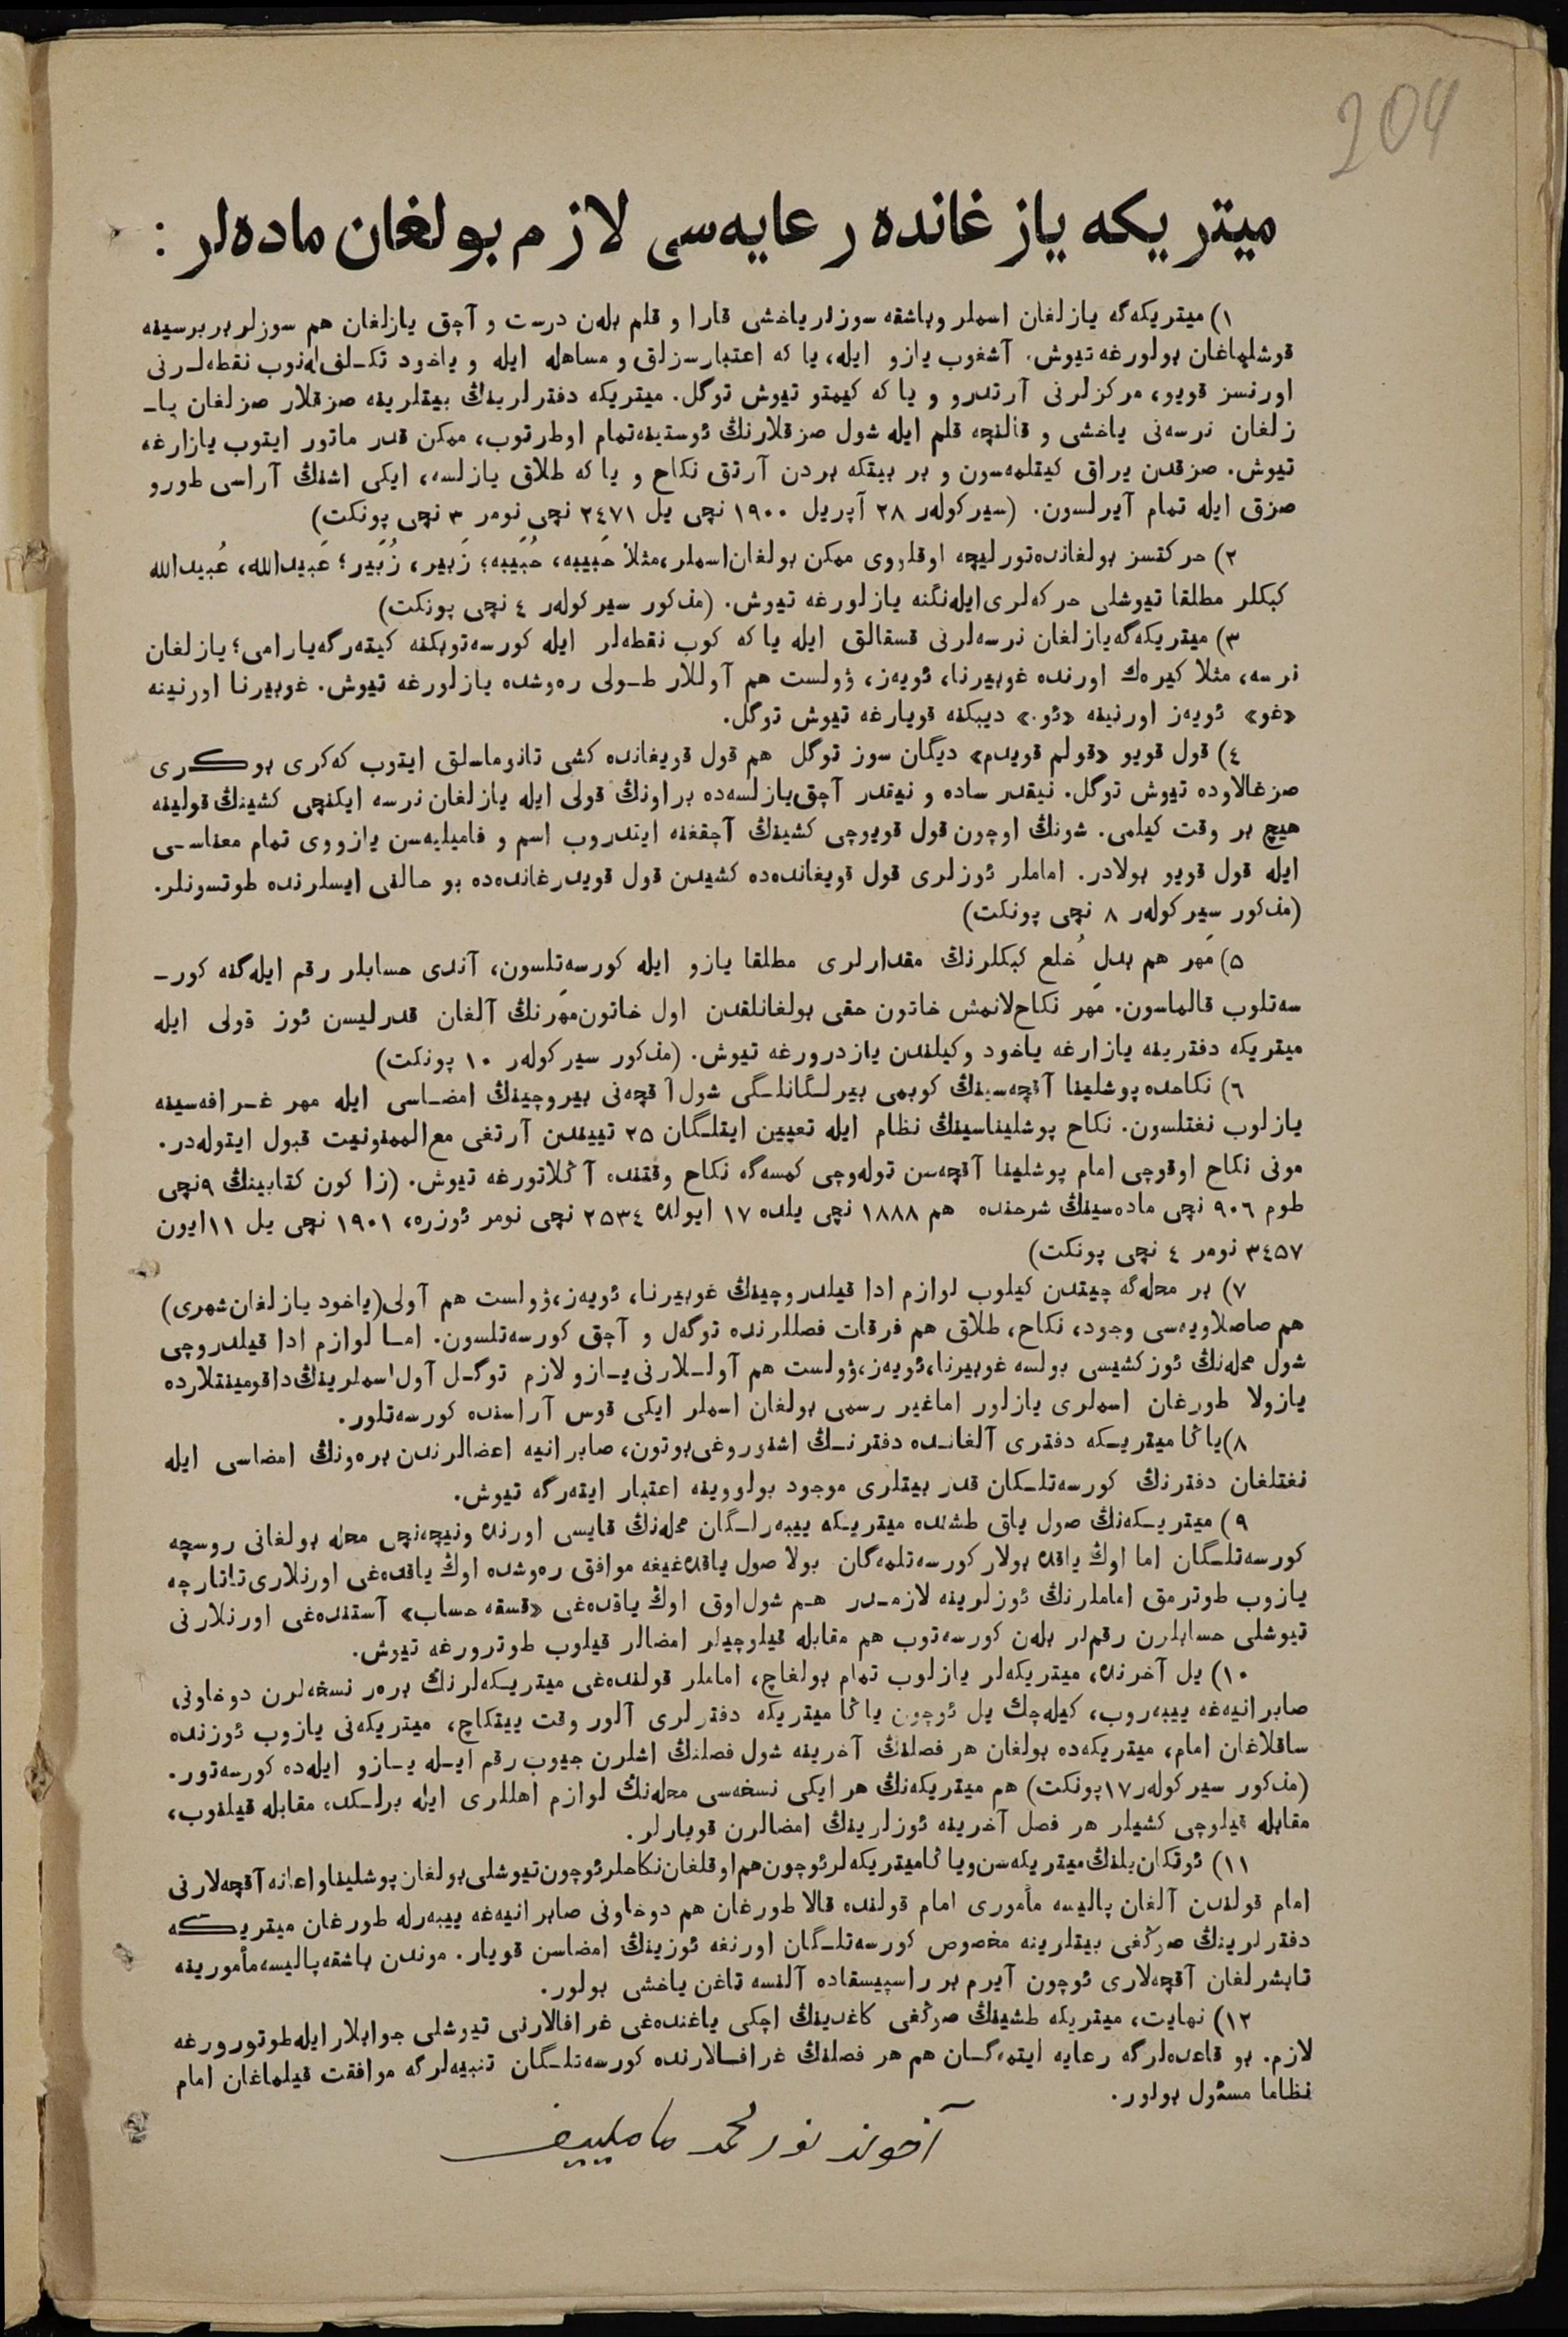 204
میتریكه یازغانده رعایه‌سی لازم بولغان ماده‌لر :
۱) میتریكه‌گه یازلغان اسملر وباشقه سوزلر یاخشی قارا و قلم بله‌ن درست و آچق یازلغان هم سوزلر بربرسینه
قوشلماغان بولورغه تیوش. آشغوب یازو ایله، یا كه اعتبارسزلق و مساهله ایله و یاخود تكلف له‌نوب نقطه‌لرنی
اورنسز قویو، مركزلرنی آرتدرو و یا كه كیمتو تیوش توگل. میتریكه دفترلرینڭ بیتلرینه صزقلار صزلغان یا-
زلغان نرسه‌نی یاخشی و قالنچه قلم ایله شول صزقلارنڭ ئوستینه تمام اوطرتوب، ممكن قدر ماتور ایتوب یازارغه
تیوش. صزقدن یراق كیتلمه‌سون و بر بیتكه بردن آرتق نكاح و یا كه طلاق یازلسه، ایكی اشنڭ آراسی طورو
صزق ایله تمام آیرلسون. (سیركوله‌ر ۲۸ آپریل ۱۹۰۰ نچی یل ۲٤۷۱ نچی نومر ۳ نچی پونكت)
۲) حركتسز بولغانده تورلیچه اوقلووی ممكن بولغان اسملر، مثلا حَبیبه، حُبَیبه؛ زَبیر، زُبَیر؛ عَبیدالله، عُبیدالله
كبكلر مطلقا تیوشلی حركه‌لری ایله‌نگنه یازلورغه تیوش. (مذكور سیركوله‌ر ٤ نچی پونكت)
۳) میتریكه‌گه یازلغان نرسه‌لرنی قسقالق ایله یا كه كوب نقطه‌لر ایله كورسه‌توبكنه كیته‌رگه یارامی؛ یازلغان
نرسه، مثلا كیره‌ك اورنده غوبیرنا، ئویه‌ز، ۋولست هم آوللار طولی ره‌وشده یازلورغه تیوش. غوبیرنا اورنینه
«غو» ئویه‌ز اورنینه «ئو.» دیبكنه قویارغه تیوش توگل.
٤) قول قویو «قولم قویدم» دیگان سوز توگل هم قول قویغانده كشی تانوماسلق ایتوب كه‌كری بوكری
صزغالاوده تیوش توگل. نیقدر ساده و نیقدر آچق یازلسه‌ده براونڭ قولی ایله یازلغان نرسه ایكنچی كشینڭ قولینه
هیچ بر وقت كیلمی. شونڭ اوچون قول قویوچی كشینڭ آچقغنه ایتدروب اسم و فامیلیه‌سن یازووی تمام معناسی
ایله قول قویو بولادر. اماملر ئوزلری قول قویغانده‌ده كشیدن قول قویدرغانده‌ده بو حالنی ایسلرنده طوتسونلر.
(مذكور سیركوله‌ر ۸ نچی پونكت)
۵) مَهر هم بدلِ خُلع كبكلرنڭ مقدارلری مطلقا یازو ایله كورسه‌تلسون، آندی حسابلر رقم ایله‌گنه كور-
سه‌تلوب قالماسون. مَهر نكاح‌لانمش خاتون حقی بولغانلقدن اول خاتون مَهرنڭ آلغان قدرلیسن ئوز قولی ایله
میتریكه دفترینه یازارغه یاخود وكیلندن یازدرورغه تیوش. (مذكور سیركوله‌ر ۱۰ پونكت)
٦) نكاحده پوشلینا آقچه‌سینڭ كوبمی بیرلگانلگی شول آقچه‌نی بیروچینڭ امضاسی ایله مهر غرافه‌سینه
یازلوب نغتلسون. نكاح پوشلیناسینڭ نظام ایله تعیین ایتلگان ۲۵ تییندن آرتغی مع‌الممنونیت قبول ایتوله‌در.
مونی نكاح اوقوچی امام پوشلینا آقچه‌سن توله‌وچی كمسه‌گه نكاح وقتنده آڭلاتورغه تیوش. (زاكون كتابینڭ ۹نچی
طوم ۹۰٦ نچی ماده‌سینڭ شرحنده هم ۱۸۸۸ نچی یلده ۱۷ ایولده ۲۵۳٤ نچی نومر ئوزره، ۱۹۰۱ نچی یل ۱۱ایون
۳٤۵۷ نومر ٤ نچی پونكت)
۷) بر محله‌گه چیتدن كیلوب لوازم ادا قیلدروچینڭ غوبیرنا، ئویه‌ز، ۋولست هم آولی (یاخود یازلغان شهری)
هم صاصلاویه‌سی وجود، نكاح، طلاق هم فرقات فصللرنده توگه‌ل و آچق كورسه‌تلسون. اما لوازم ادا قیلدروچی
شول محله‌نڭ ئوز كشیسی بولسه غوبیرنا، ئویه‌ز، ۋولست هم آوللارنی یازو لازم توگل آول اسملرینڭ داقومینتلارده
یازولا طورغان اسملری یازلور اماغیر رسمی بولغان اسملر ایكی قوس آراسنده كورسه‌تلور.
۸) یاڭا میتریكه دفتری آلغانده دفترنڭ اشنوروغی بوتون، صابرانیه اعضالرندن بره‌ونڭ امضاسی ایله
نغتلغان دفترنڭ كورسه‌تلكان قدر بیتلری موجود بولووینه اعتبار ایته‌رگه تیوش.
۹) میتریكه‌نڭ صول یاق طشنده میتریكه ییبه‌رلگان محله‌نڭ قایسی اورنده ونیچه‌نچی محله بولغانی روسچه
كورسه‌تلگان اما اوڭ یاقده بولار كورسه‌تلمه‌گان بولا صول یاقده‌غیغه موافق ره‌وشده اوڭ یاقده‌غی اورنلاری تاتارچه
یازوب طوترمق اماملرنڭ ئوزلرینه لازمدر هم شول‌اوق اوڭ یاقده‌غی «قسقه حساب» آستنده‌غی اورنلارنی
تیوشلی حسابلرن رقم‌لر بله‌ن كورسه‌توب هم مقابله قیلوچیلر امضالر قیلوب طوترورغه تیوش.
۱۰) یل آخرنده، میتریكه‌لر یازلوب تمام بولغاچ، اماملر قولنده‌غی میتریكه‌لرنڭ بره‌ر نسخه‌لرن دوخاونی
صابرانیه‌غه ییبه‌روب، كیله‌چك یل ئوچون یاڭا میتریكه دفترلری آلور وقت ییتكاچ، میتریكه‌نی یازوب ئوزنده
ساقلاغان امام، میتریكه‌ده بولغان هر فصلنڭ آخرینه شول فصلنڭ اشلرن جیوب رقم ایله یازو ایله‌ده كورسه‌تور.
(مذكور سیركوله‌ر ۱۷پونكت) هم میتریكه‌نڭ هر ایكی نسخه‌سی محله‌نڭ لوازم اهللری ایله برلكده مقابله قیلنوب،
مقابله قیلوچی كشیلر هر فصل آخرینه ئوزلرینڭ امضالرن قویارلر.
۱۱) ئوتكان یلنڭ میتریكه‌سن ویاڭا میتریكه‌لر ئوچون هم اوقلغان نكاحلر ئوچون تیوشلی بولغان پوشلینا و اعانه آقچه‌لارنی
امام قولندن آلغان پالیسه مأموری امام قولنده قالا طورغان هم دوخاونی صابرانیه‌غه ییبه‌رله طورغان میتریكه
دفترلرینڭ صوڭغی بیتلرینه مخصوص كورسه‌تلگان اورنغه ئوزینڭ امضاسن قویار. موندن باشقه پالیسه مأمورینه
تابشرلغان آقچه‌لاری ئوچون آیرم بر راسپیسقاده آلنسه تاغن یاخشی بولور.
۱۲) نهایت، میتریكه طشینڭ صوڭغی كاغدینڭ اچكی یاغنده‌غی غرافالارنی تیوشلی جوابلار ایله طوتورورغه
لازم. بو قاعده‌لرگه رعایه ایتمه‌گان هم هر فصلنڭ غرافالارنده كورسه‌تلگان تنبیه‌لرگه موافقت قیلماغان امام
نظاما مسئول بولور.
آخوند نورمحمد مامليیف